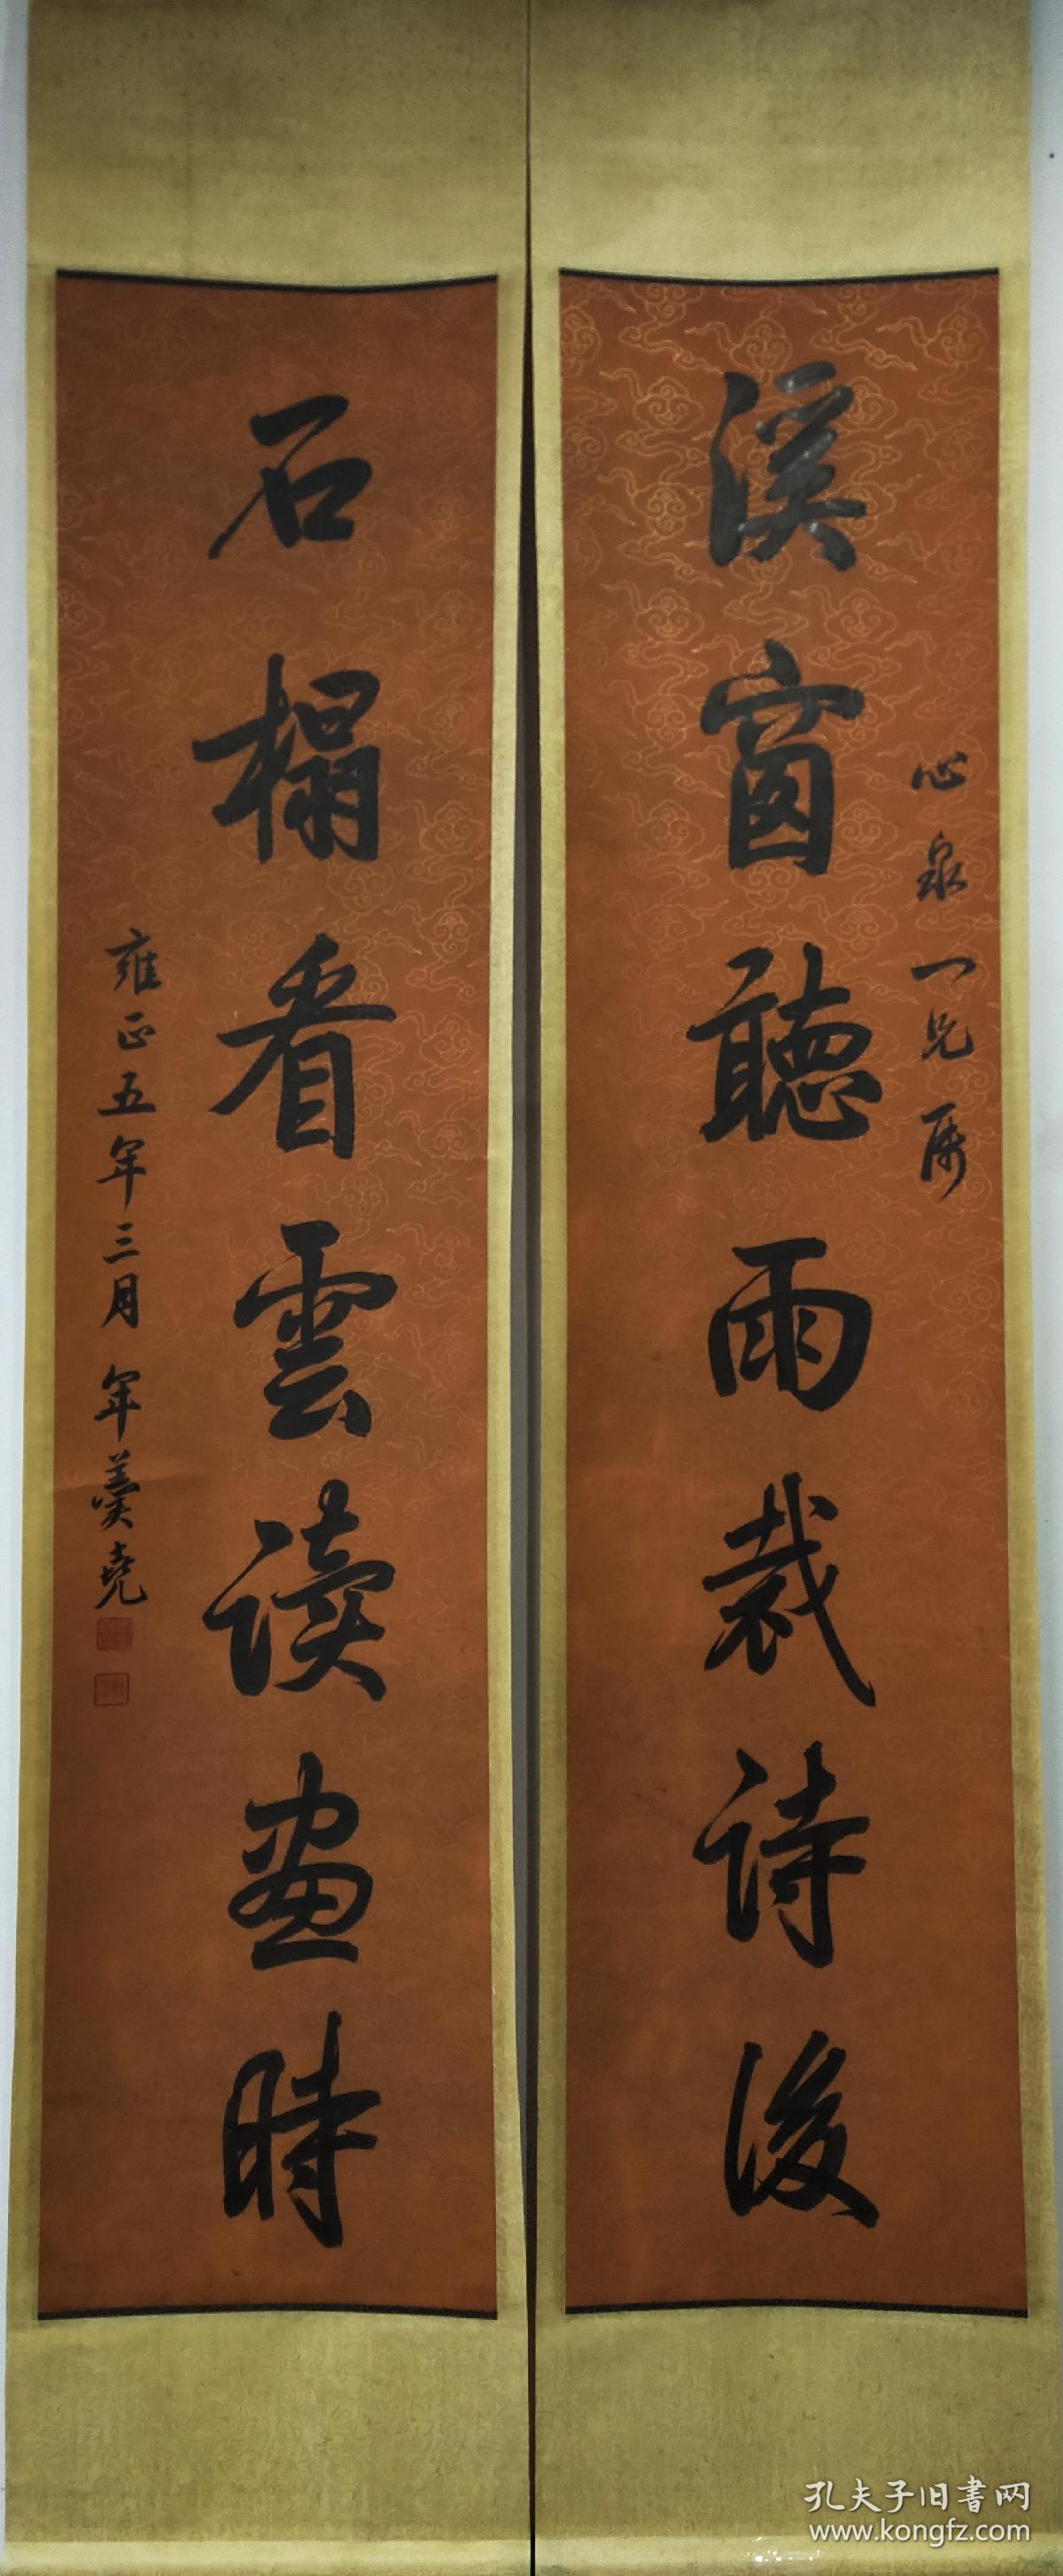 心泉一兄属
溪窗聽雨裁诗後
石榻看雲读畫時
雍正五年三月 年羹堯
孔夫子旧書网
www.kongfz.com